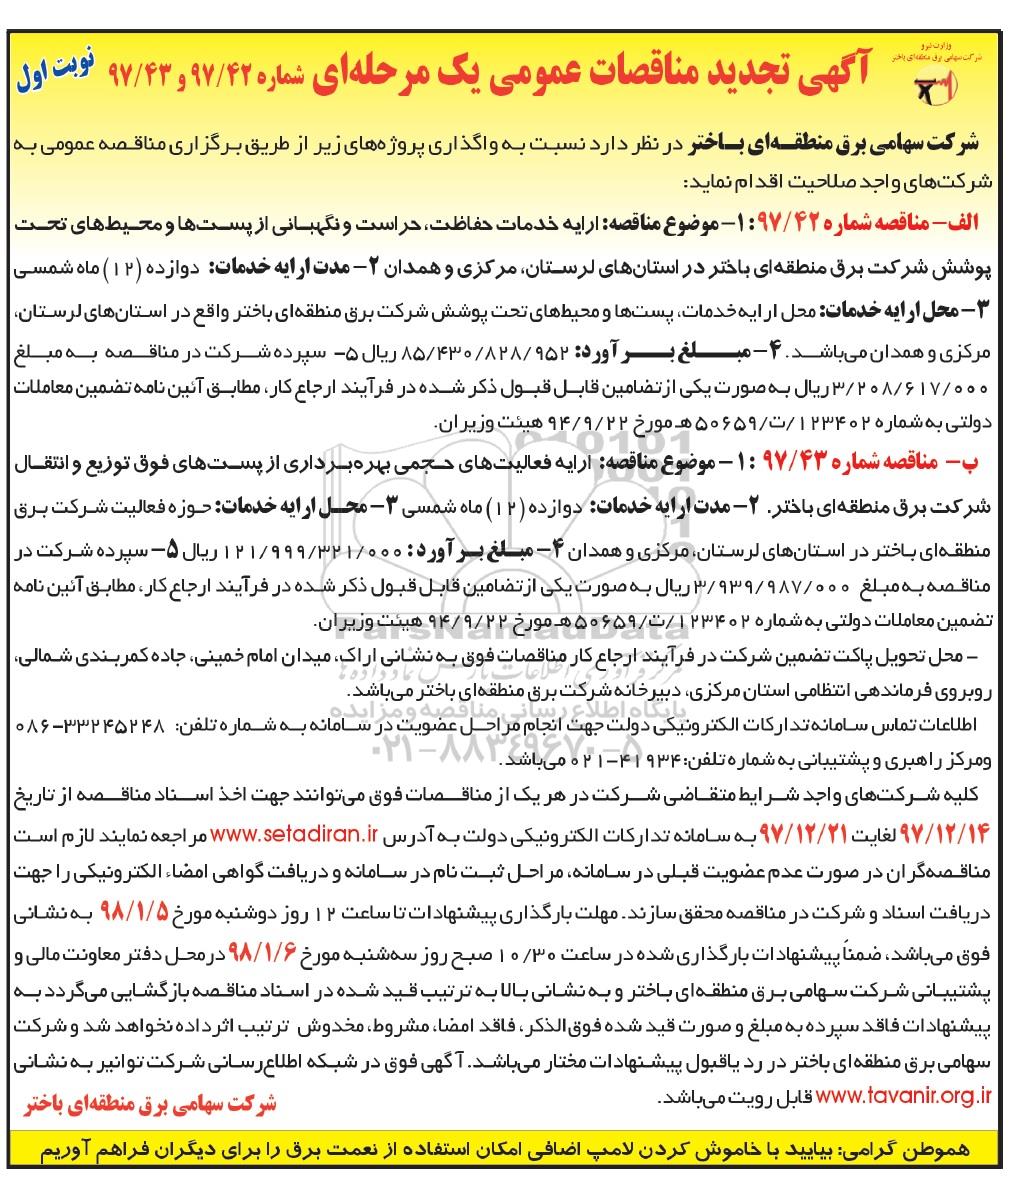 وزارت نیرو
شرکت سهامی برق منطقه‌ای باختر
آگهی تجدید مناقصات عمومی یک مرحله‌ای شماره ۹۷/۴۲ و ۹۷/۴۳
نوبت اول
شرکت سهامی برق منطقه‌ای باختر در نظر دارد نسبت به واگذاری پروژه‌های زیر از طریق برگزاری مناقصه عمومی به
شرکت‌های واجد صلاحیت اقدام نماید:
الف- مناقصه شماره ۹۷/۴۲: ۱- موضوع مناقصه: ارایه خدمات حفاظت، حراست و نگهبانی از پست‌ها و محیط‌های تحت
پوشش شرکت برق منطقه‌ای باختر در استان‌های لرستان، مرکزی و همدان ۲- مدت ارایه خدمات: دوازده (۱۲) ماه شمسی
۳- محل ارایه خدمات: محل ارایه خدمات، پست‌ها و محیط‌های تحت پوشش شرکت برق منطقه‌ای باختر واقع در استان‌های لرستان،
مرکزی و همدان می‌باشد. ۴- مبلغ برآورد: ۸۵/۴۳۰/۸۲۸/۹۵۲ ریال ۵- سپرده شرکت در مناقصه به مبلغ
۳/۲۰۸/۶۱۷/۰۰۰ ریال به صورت یکی از تضامین قابل قبول ذکر شده در فرآیند ارجاع کار، مطابق آئین نامه تضمین معاملات
دولتی به شماره ۱۲۳۴۰۲/ت/۵۰۶۵۹هـ مورخ ۹۴/۹/۲۲ هیئت وزیران.
ب- مناقصه شماره ۹۷/۴۳ : ۱- موضوع مناقصه: ارایه فعالیت‌های حجمی بهره‌برداری از پست‌های فوق توزیع و انتقال
شرکت برق منطقه‌ای باختر. ۲- مدت ارایه خدمات: دوازده (۱۲) ماه شمسی ۳- محل ارایه خدمات: حوزه فعالیت شرکت برق
منطقه‌ای باختر در استان‌های لرستان، مرکزی و همدان ۴- مبلغ برآورد: ۱۲۱/۹۹۹/۳۲۱/۰۰۰ ریال ۵- سپرده شرکت در
مناقصه به مبلغ ۳/۹۳۹/۹۸۷/۰۰۰ ریال به صورت یکی از تضامین قابل قبول ذکر شده در فرآیند ارجاع کار، مطابق آئین نامه
تضمین معاملات دولتی به شماره ۱۲۳۴۰۲/ت/۵۰۶۵۹هـ مورخ ۹۴/۹/۲۲ هیئت وزیران.
ParsNamadData
- محل تحویل پاکت تضمین شرکت در فرآیند ارجاع کار مناقصات فوق به نشانی اراک، میدان امام خمینی، جاده کمربندی شمالی،
مرکز فرآوری اطلاعات پارس نماد داده‌ها
روبروی فرماندهی انتظامی استان مرکزی، دبیرخانه شرکت برق منطقه‌ای باختر می‌باشد.
پایگاه اطلاع رسانی مناقصه و مزایده
اطلاعات تماس سامانه تدارکات الکترونیکی دولت جهت انجام مراحل عضویت در سامانه به شماره تلفن: ۳۳۲۴۵۲۴۸-۰۸۶
۰۲۱-۸۸۳۴۹۶۷۰-۵
ومرکز راهبری و پشتیبانی به شماره تلفن: ۴۱۹۳۴-۰۲۱ می‌باشد.
کلیه شرکت‌های واجد شرایط متقاضی شرکت در هر یک از مناقصات فوق می‌توانند جهت اخذ اسناد مناقصه از تاریخ
۹۷/۱۲/۱۴ لغایت ۹۷/۱۲/۲۱ به سامانه تدارکات الکترونیکی دولت به آدرس www.setadiran.ir مراجعه نمایند لازم است
مناقصه‌گران در صورت عدم عضویت قبلی در سامانه، مراحل ثبت نام در سامانه و دریافت گواهی امضاء الکترونیکی را جهت
دریافت اسناد و شرکت در مناقصه محقق سازند. مهلت بارگذاری پیشنهادات تا ساعت ۱۲ روز دوشنبه مورخ ۹۸/۱/۵ به نشانی
فوق می‌باشد، ضمناً پیشنهادات بارگذاری شده در ساعت ۱۰/۳۰ صبح روز سه‌شنبه مورخ ۹۸/۱/۶ در محل دفتر معاونت مالی و
پشتیبانی شرکت سهامی برق منطقه‌ای باختر و به نشانی بالا به ترتیب قید شده در اسناد مناقصه بازگشایی می‌گردد به
پیشنهادات فاقد سپرده به مبلغ و صورت قید شده فوق‌الذکر، فاقد امضا، مشروط، مخدوش ترتیب اثر داده نخواهد شد و شرکت
سهامی برق منطقه‌ای باختر در رد یا قبول پیشنهادات مختار می‌باشد. آگهی فوق در شبکه اطلاع‌رسانی شرکت توانیر به نشانی
www.tavanir.org.ir قابل رویت می‌باشد.
شرکت سهامی برق منطقه‌ای باختر
هموطن گرامی: بیایید با خاموش کردن لامپ اضافی امکان استفاده از نعمت برق را برای دیگران فراهم آوریم